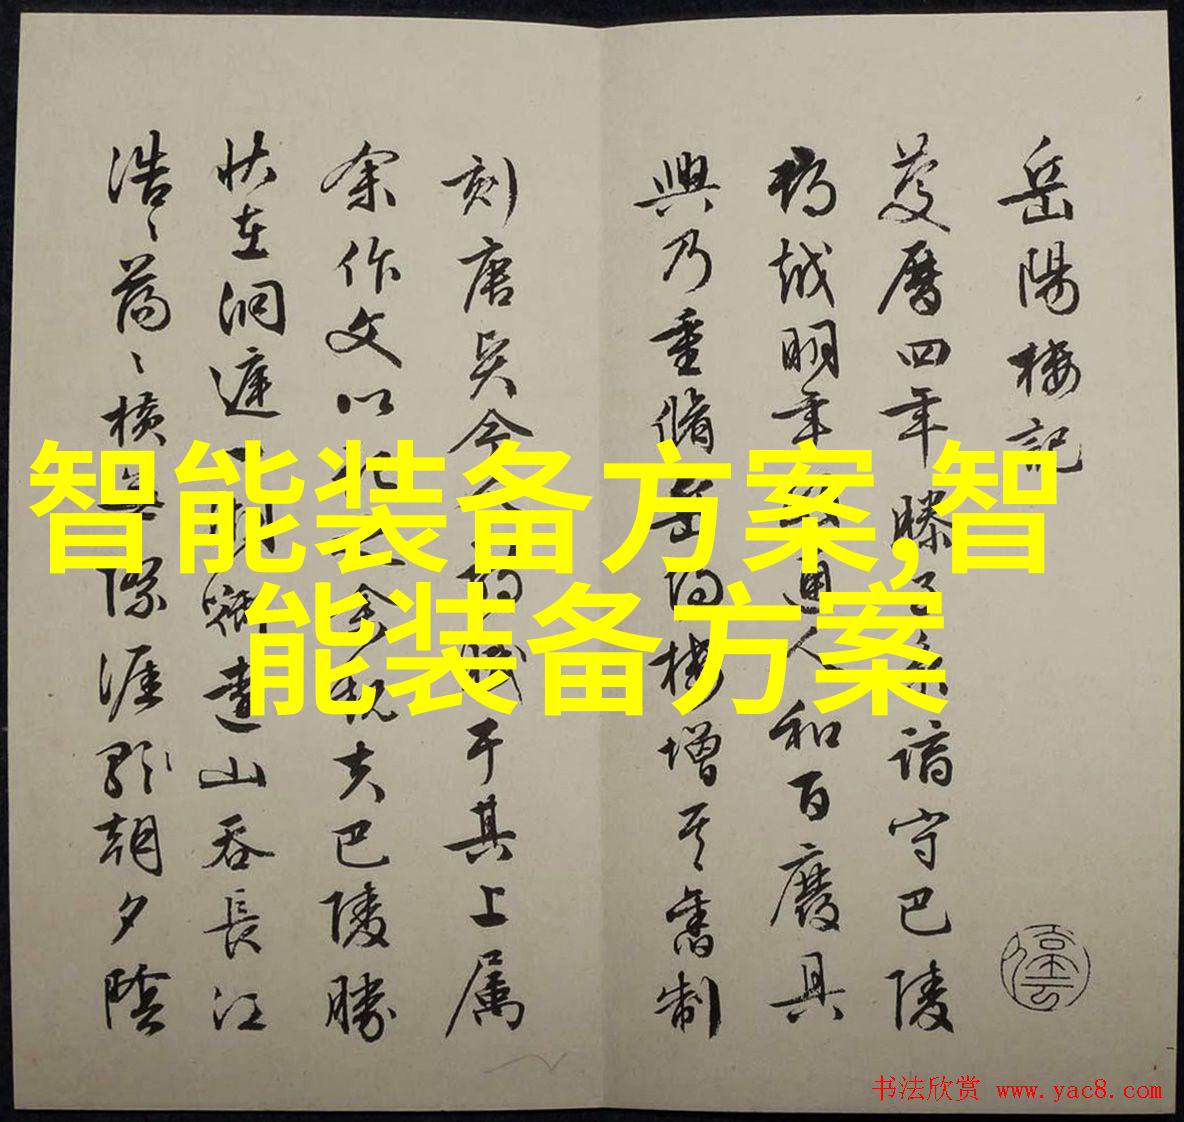 岳陽樓記
慶曆四年滕子京謫守巴陵
郡越明年政通人和百廢具
興乃重脩岳陽樓增其舊制
刻唐賢今人詩賦于其上屬
余作文以記之余觀夫巴陵勝
狀在洞庭一湖銜遠山吞長江
浩〻蕩〻橫無際涯朝夕陰
智能装备方案,智
能装备方案
书法欣赏 www.yac8.com